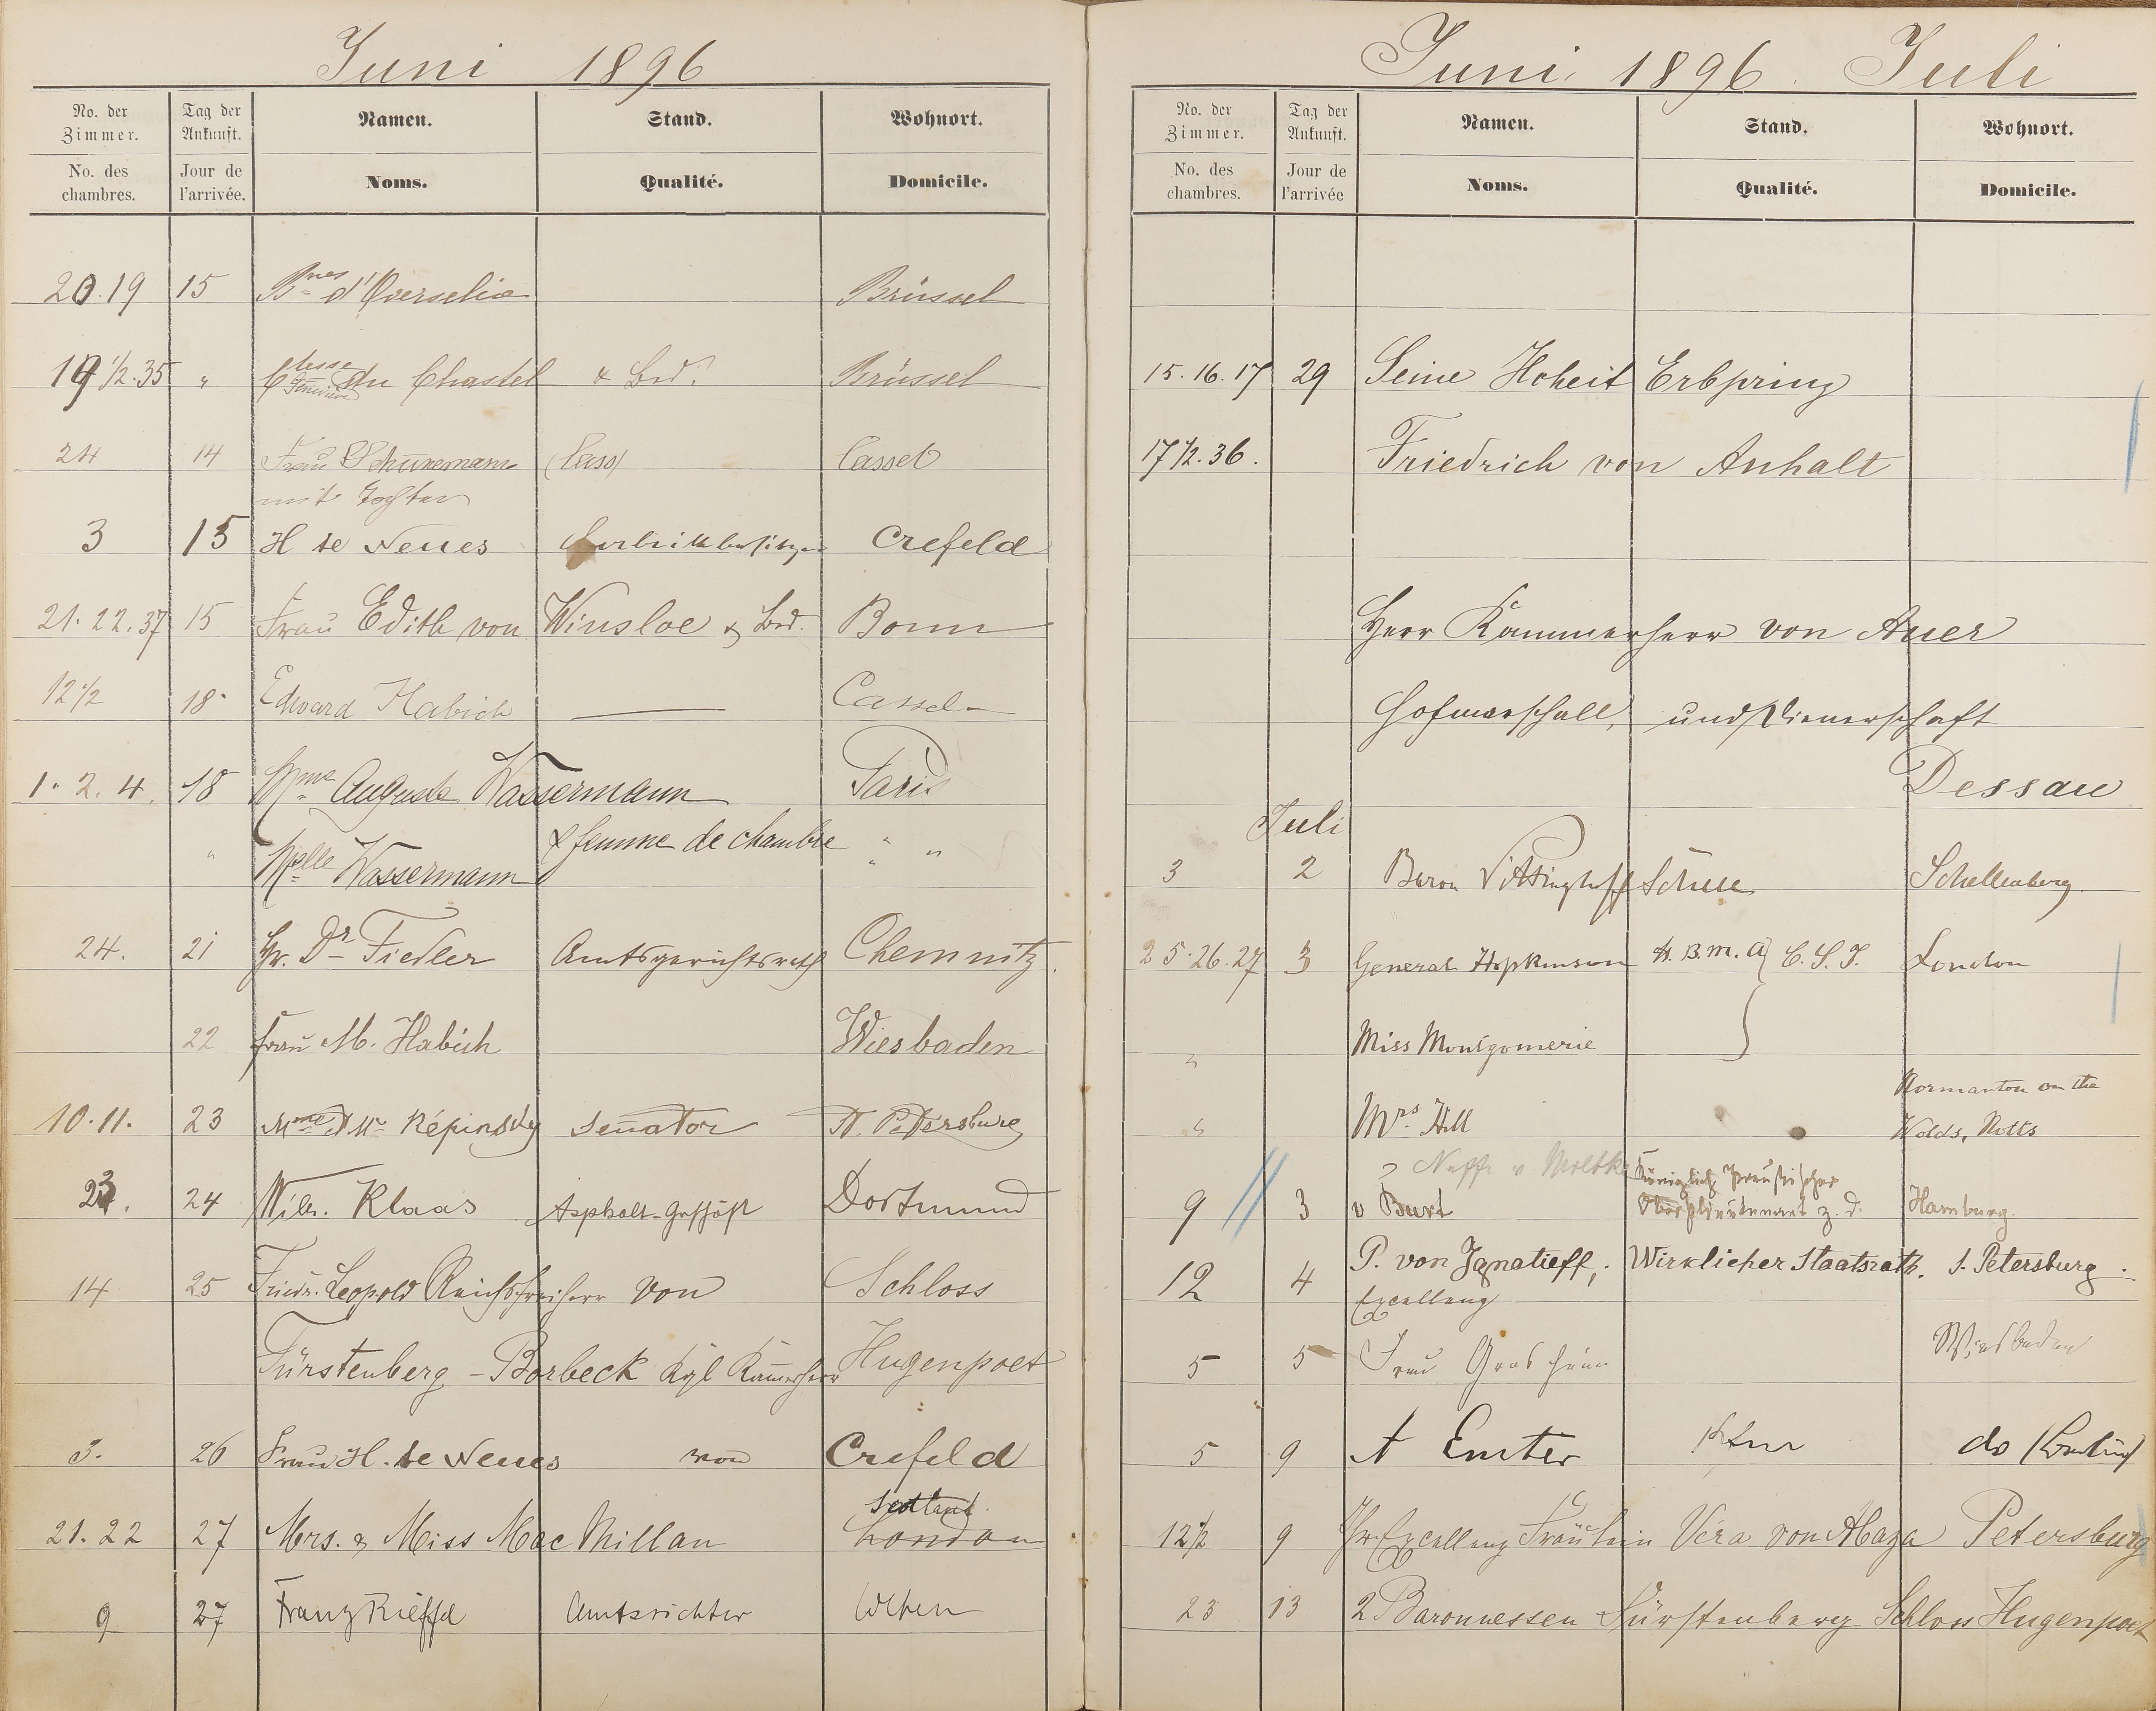 Juni 1896
No. der Zimmer. Tag der Ankunft. Namen. Stand. Wohnort.
No. des chambres. Jour de l'arrivée. Noms. Qualité. Domicile.
20.19 15 Bnes d'Overschie Brüssel
19 1/2.35 " Ctesse du Chastel & Bed. Brüssel
24 14 Frau Schünemann Cassel
mit Tochter
3 15 H te Neues Fabrikbesitzer Crefeld
21.22.37 15 Frau Edith von Winsloe & Bed. Bonn
12 1/2 18 Edward Habich — Cassel
1.2.4. 18 Mme Auguste Wassermann Paris
& femme de chambre " "
" Melle Wassermann
24. 21 Hr. Dr Fiedler Amtsgerichtsrath Chemnitz.
22 Frau M. Habich Wiesbaden
10.11. 23 Mme & Mr Répinsky Senator St. Petersburg
23. 24 Wilh. Klaas Asphalt-Geschäft Dortmund
14 25 Friedr. Leopold Reichsfreiherr von Schloss
Fürstenberg-Borbeck Kgl Kammerherr Hugenpoet
3. 26 Frau H. te Neues von Crefeld
Scotland
21.22 27 Mrs. & Miss Mac Millan London
9 27 Franz Rieffel Amtsrichter
Juni 1896. Juli
No. der Zimmer. Tag der Ankunft. Namen. Stand. Wohnort.
No. des chambres. Jour de l'arrivée Noms. Qualité. Domicile.
15.16.17 29 Seine Hoheit Erbprinz
17 1/2.36. Friedrich von Anhalt
Herr Kammerherr von Auer
Hofmarschall, und Dienerschaft
Dessau
Juli
3 2 Baron Vittinghoff Schell Schellenberg.
25.26.27 3 General Hopkinson H.B.M.A} C.S.I. London
" Miss Montgomerie }
Normanton on the
" Mrs. Hill Wolds, Notts
? Neffe v Moltke Königlich Preußischer
9 3 v Burt Oberstlieutenant z. D. Hamburg.
12 4 P. von Ignatieff, Wirklicher Staatsrath. S. Petersburg.
Excellenz
5 5 Frau Grasheim Wiesbaden
5 9 A Emter do
12 1/2 9 Ihr. Excellenz Fräulein Véra von Abaza Petersburg
23 13 2 Baronnessen Fürstenberg Schloss Hugenpoet